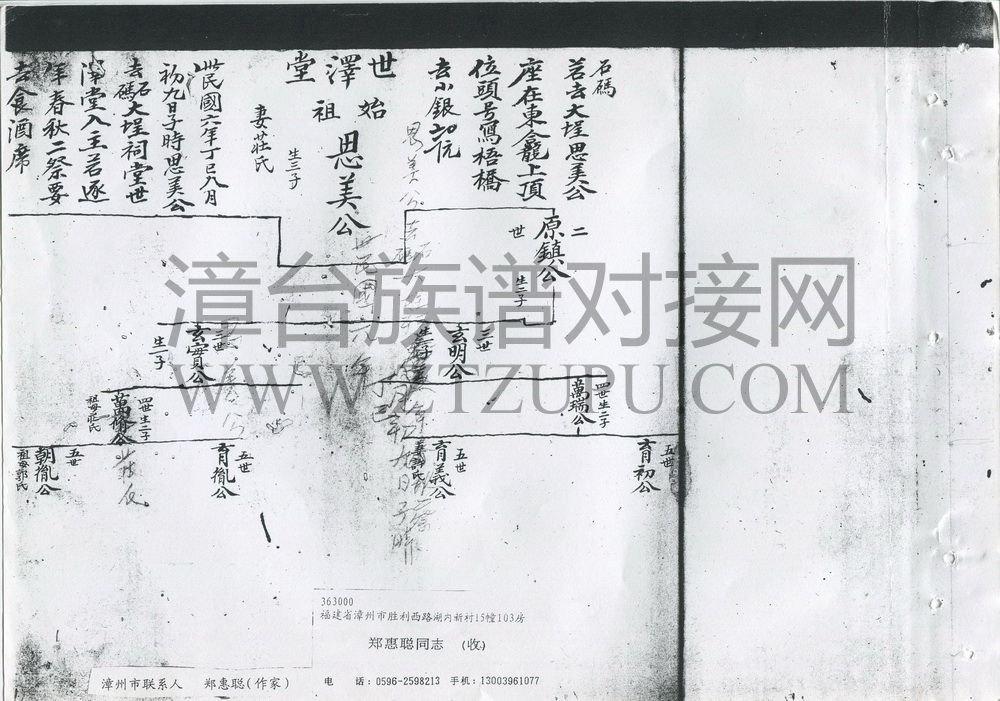 石碼
若去大埕思美公
座在東龕上頂
位頭号寫梧橋
去小銀
世澤堂
始祖
思美公
妻莊氏
生三子
民國六年丁巳八月
初九日子時思美公
去石碼大埕祠堂世
澤堂入主若逐
年春秋二祭要
去食酒席
二世
原鎮公
生二子
三世
玄明公
三世
玄實公
生一子
四世生二子
萬瑞公
四世生二子
祖母莊氏
五世
育初公
五世
育義公
五世
育胤公
五世
朝胤公
祖母郭氏
漳台族谱对接网
WWW.ZTZUPU.COM
363000
福建省漳州市胜利西路湖内新村15幢103房
郑惠聪同志 (收)
漳州市联系人 郑惠聪(作家)
电 话:0596-2598213 手机:13003961077